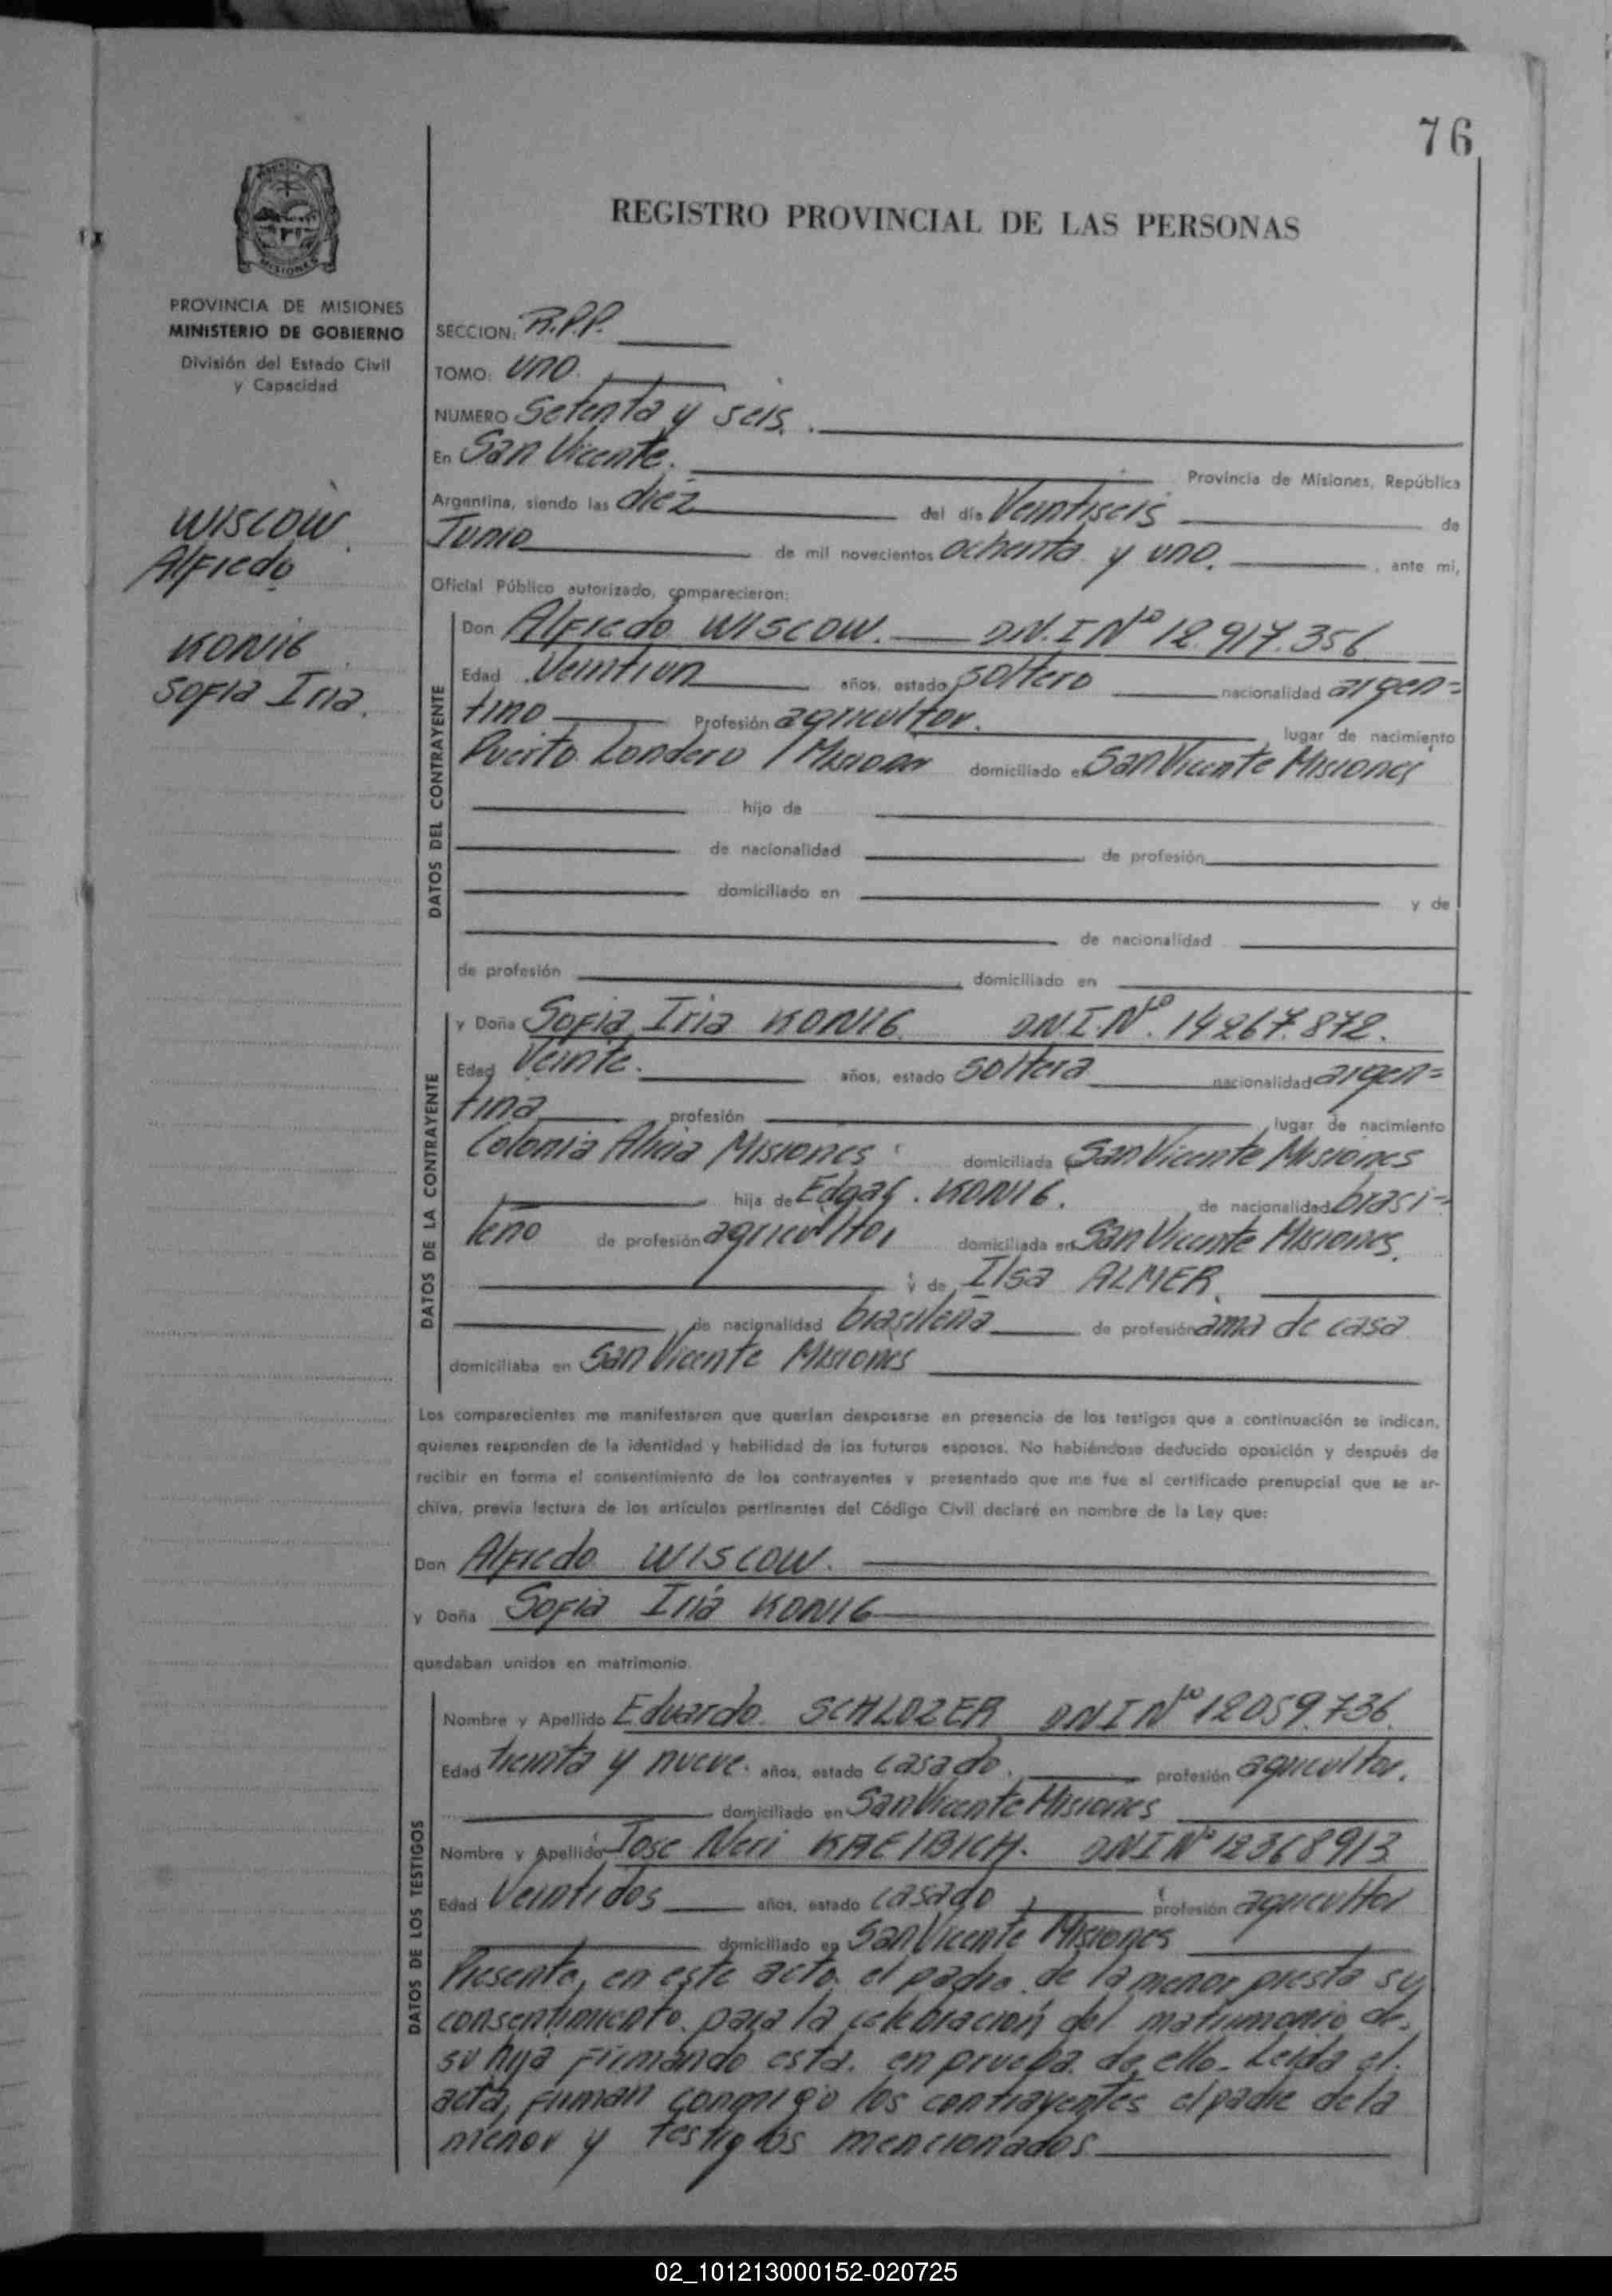 76
REGISTRO PROVINCIAL DE LAS PERSONAS
MISIONES
PROVINCIA DE MISIONES
MINISTERIO DE GOBIERNO
División del Estado Civil
y Capacidad
WISCOW
Alfredo
KONIG
Sofia Iria.
SECCION: R.P.P.
TOMO: uno.
NUMERO Setenta y seis.
En San Vicente. Provincia de Misiones, República
Argentina, siendo las diez del día Veintiseis de
Junio de mil novecientos ochenta y uno. , ante mi,
Oficial Público autorizado, comparecieron:
DATOS DEL CONTRAYENTE
Don Alfredo WISCOW. D.N.I Nº 12.917.356
Edad Veintiun años, estado soltero nacionalidad argen=
tino Profesión agricultor. lugar de nacimiento
Puerto Londero / Misiones domiciliado en San Vicente Misiones
hijo de
de nacionalidad de profesión
domiciliado en y de
de nacionalidad
de profesión , domiciliado en
DATOS DE LA CONTRAYENTE
y Doña Sofia Iria KONIG DNI.Nº. 14267.872.
Edad Veinte. años, estado soltera nacionalidad argen=
tina profesión lugar de nacimiento
Colonia Alicia Misiones domiciliada en San Vicente Misiones
hija de Edgar. KONIG. de nacionalidad brasi=
leño de profesión agricultor domiciliada en San Vicente Misiones.
y de Ilsa ALMER.
de nacionalidad brasileña de profesión ama de casa
domiciliaba en San Vicente Misiones
Los comparecientes me manifestaron que querían desposarse en presencia de los testigos que a continuación se indican,
quienes responden de la identidad y habilidad de los futuros esposos. No habiéndose deducido oposición y después de
recibir en forma el consentimiento de los contrayentes y presentado que me fue el certificado prenupcial que se ar-
chiva, previa lectura de los artículos pertinentes del Código Civil declaré en nombre de la Ley que:
Don Alfredo WISCOW.
y Doña Sofia Iria KONIG
quedaban unidos en matrimonio.
DATOS DE LOS TESTIGOS
Nombre y Apellido Eduardo. SCHLOZER DNI Nº 12059.736.
Edad treinta y nueve. años, estado casado. profesión agricultor.
domiciliado en San Vicente Misiones
Nombre y Apellido Jose Neri KREIBICH. DNI Nº 12368913
Edad Veintidos años, estado casado profesión agricultor
domiciliado en San Vicente Misiones
Presente, en este acto. el padre de la menor presta su
consentimiento. para la celebración del matrimonio de
su hija firmando esta. en prueba de ello. Leida el.
acta, firman conmigo los contrayentes el padre de la
menor y testigos mencionados
02_101213000152-020725